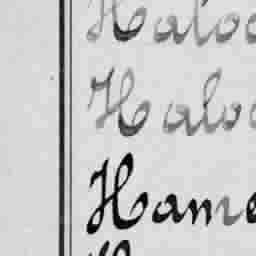 Haloc
Haloc
Hame